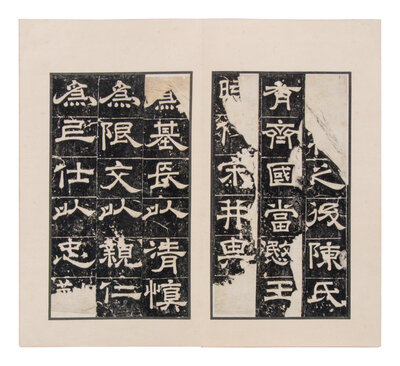 之後陳氏
有齊國當愍王
時宋并
為基長以清慎
為限交以親仁
為已仕以忠